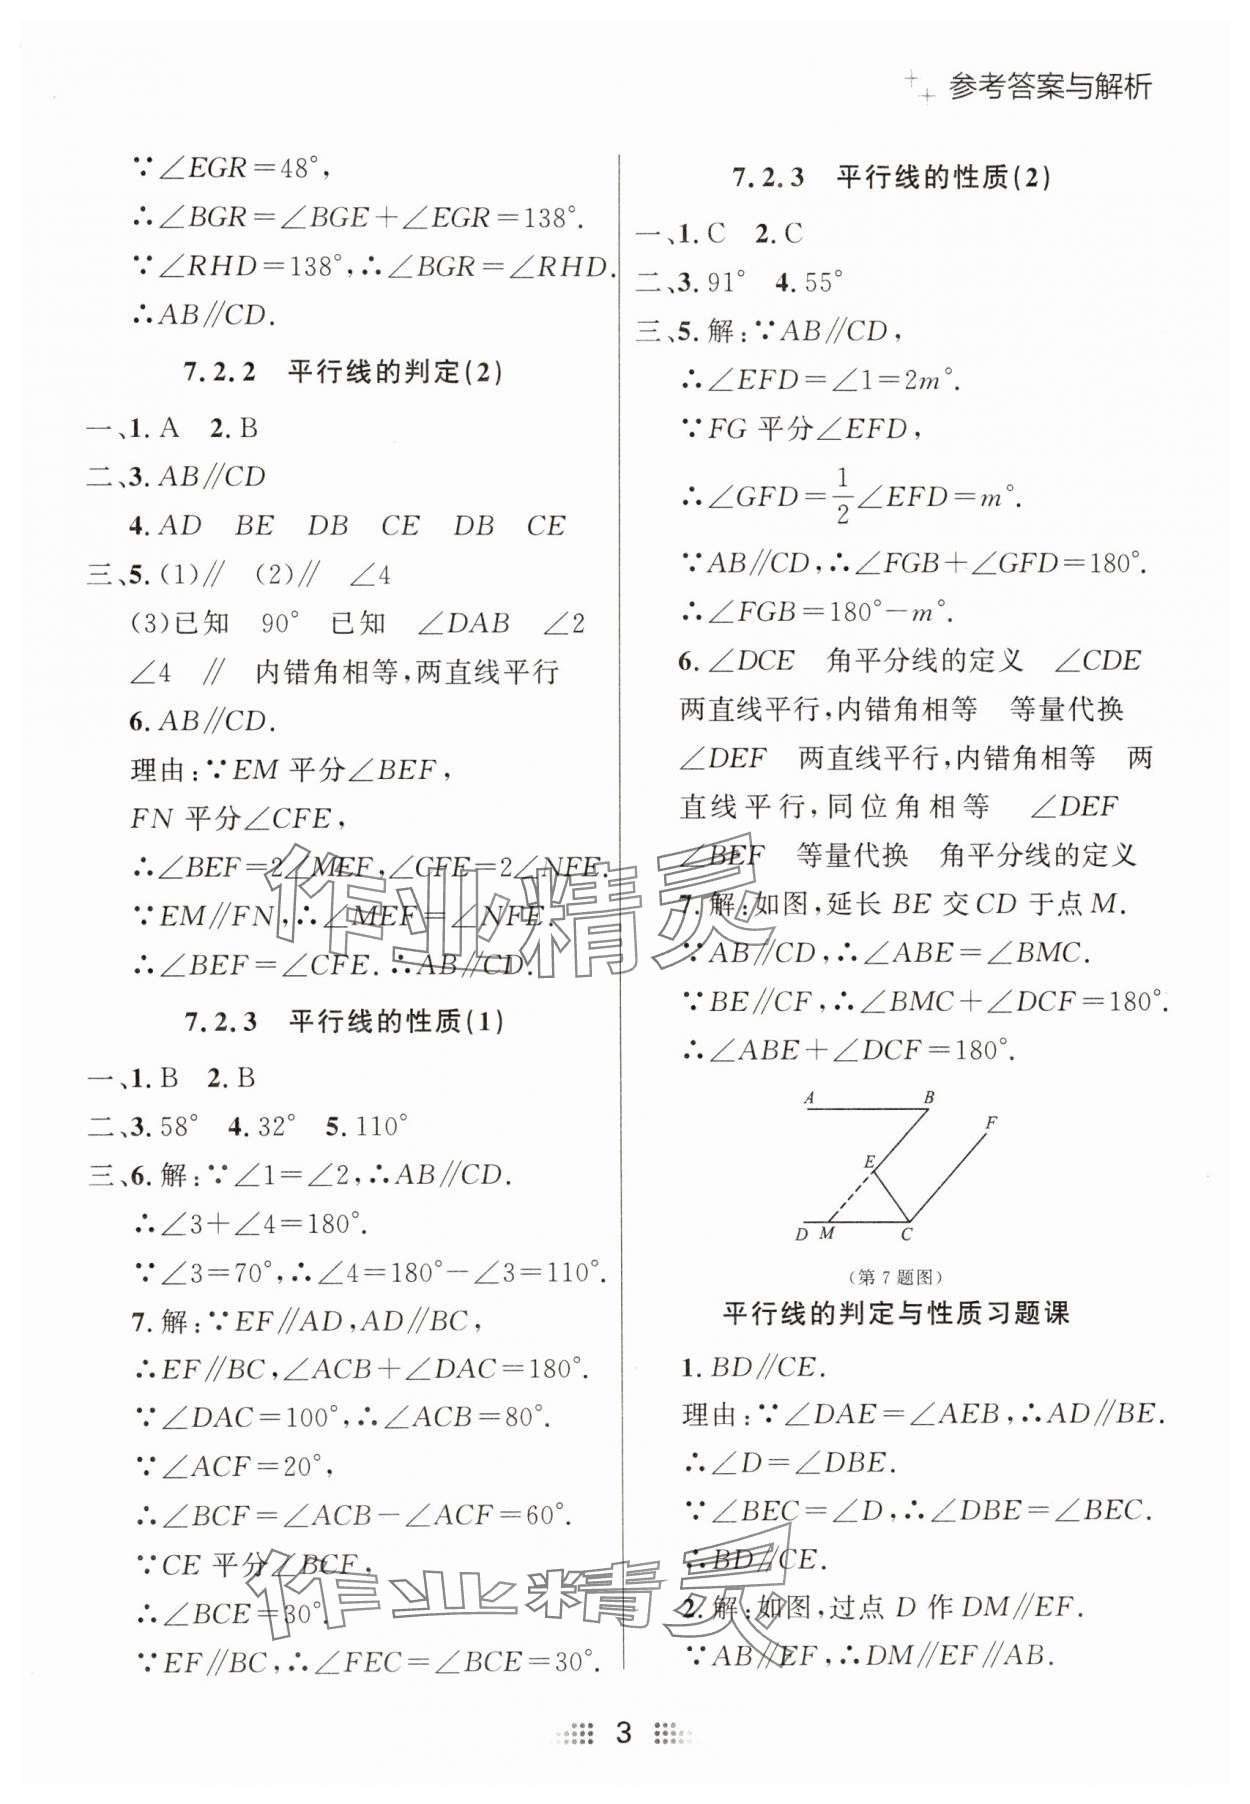 参考答案与解析
∵∠EGR＝48°,
∴∠BGR＝∠BGE＋∠EGR＝138°.
∵∠RHD＝138°,∴∠BGR＝∠RHD.
∴AB∥CD.
7.2.2 平行线的判定(2)
一、1.A 2.B
二、3.AB∥CD
4.AD BE DB CE DB CE
三、5.(1)∥ (2)∥ ∠4
(3)已知 90° 已知 ∠DAB ∠2
∠4 ∥ 内错角相等,两直线平行
6.AB∥CD.
理由:∵EM平分∠BEF,
FN平分∠CFE,
∴∠BEF＝2∠MEF,∠CFE＝2∠NFE.
∵EM∥FN,∴∠MEF＝∠NFE.
∴∠BEF＝∠CFE.∴AB∥CD.
7.2.3 平行线的性质(1)
一、1.B 2.B
二、3.58° 4.32° 5.110°
三、6.解:∵∠1＝∠2,∴AB∥CD.
∴∠3＋∠4＝180°.
∵∠3＝70°,∴∠4＝180°－∠3＝110°.
7.解:∵EF∥AD,AD∥BC,
∴EF∥BC,∠ACB＋∠DAC＝180°.
∵∠DAC＝100°,∴∠ACB＝80°.
∵∠ACF＝20°,
∴∠BCF＝∠ACB－∠ACF＝60°.
∵CE平分∠BCF,
∴∠BCE＝30°.
∵EF∥BC,∴∠FEC＝∠BCE＝30°.
7.2.3 平行线的性质(2)
一、1.C 2.C
二、3.91° 4.55°
三、5.解:∵AB∥CD,
∴∠EFD＝∠1＝2m°.
∵FG平分∠EFD,
∴∠GFD＝1/2∠EFD＝m°.
∵AB∥CD,∴∠FGB＋∠GFD＝180°.
∴∠FGB＝180°－m°.
6.∠DCE 角平分线的定义 ∠CDE
两直线平行,内错角相等 等量代换
∠DEF 两直线平行,内错角相等 两
直线平行,同位角相等 ∠DEF
∠BEF 等量代换 角平分线的定义
7.解:如图,延长BE交CD于点M.
∵AB∥CD,∴∠ABE＝∠BMC.
∵BE∥CF,∴∠BMC＋∠DCF＝180°.
∴∠ABE＋∠DCF＝180°.
A B
F
E
D M C
(第7题图)
平行线的判定与性质习题课
1.BD∥CE.
理由:∵∠DAE＝∠AEB,∴AD∥BE.
∴∠D＝∠DBE.
∵∠BEC＝∠D,∴∠DBE＝∠BEC.
∴BD∥CE.
2.解:如图,过点D作DM∥EF.
∵AB∥EF,∴DM∥EF∥AB.
作业精灵
作业精灵
3